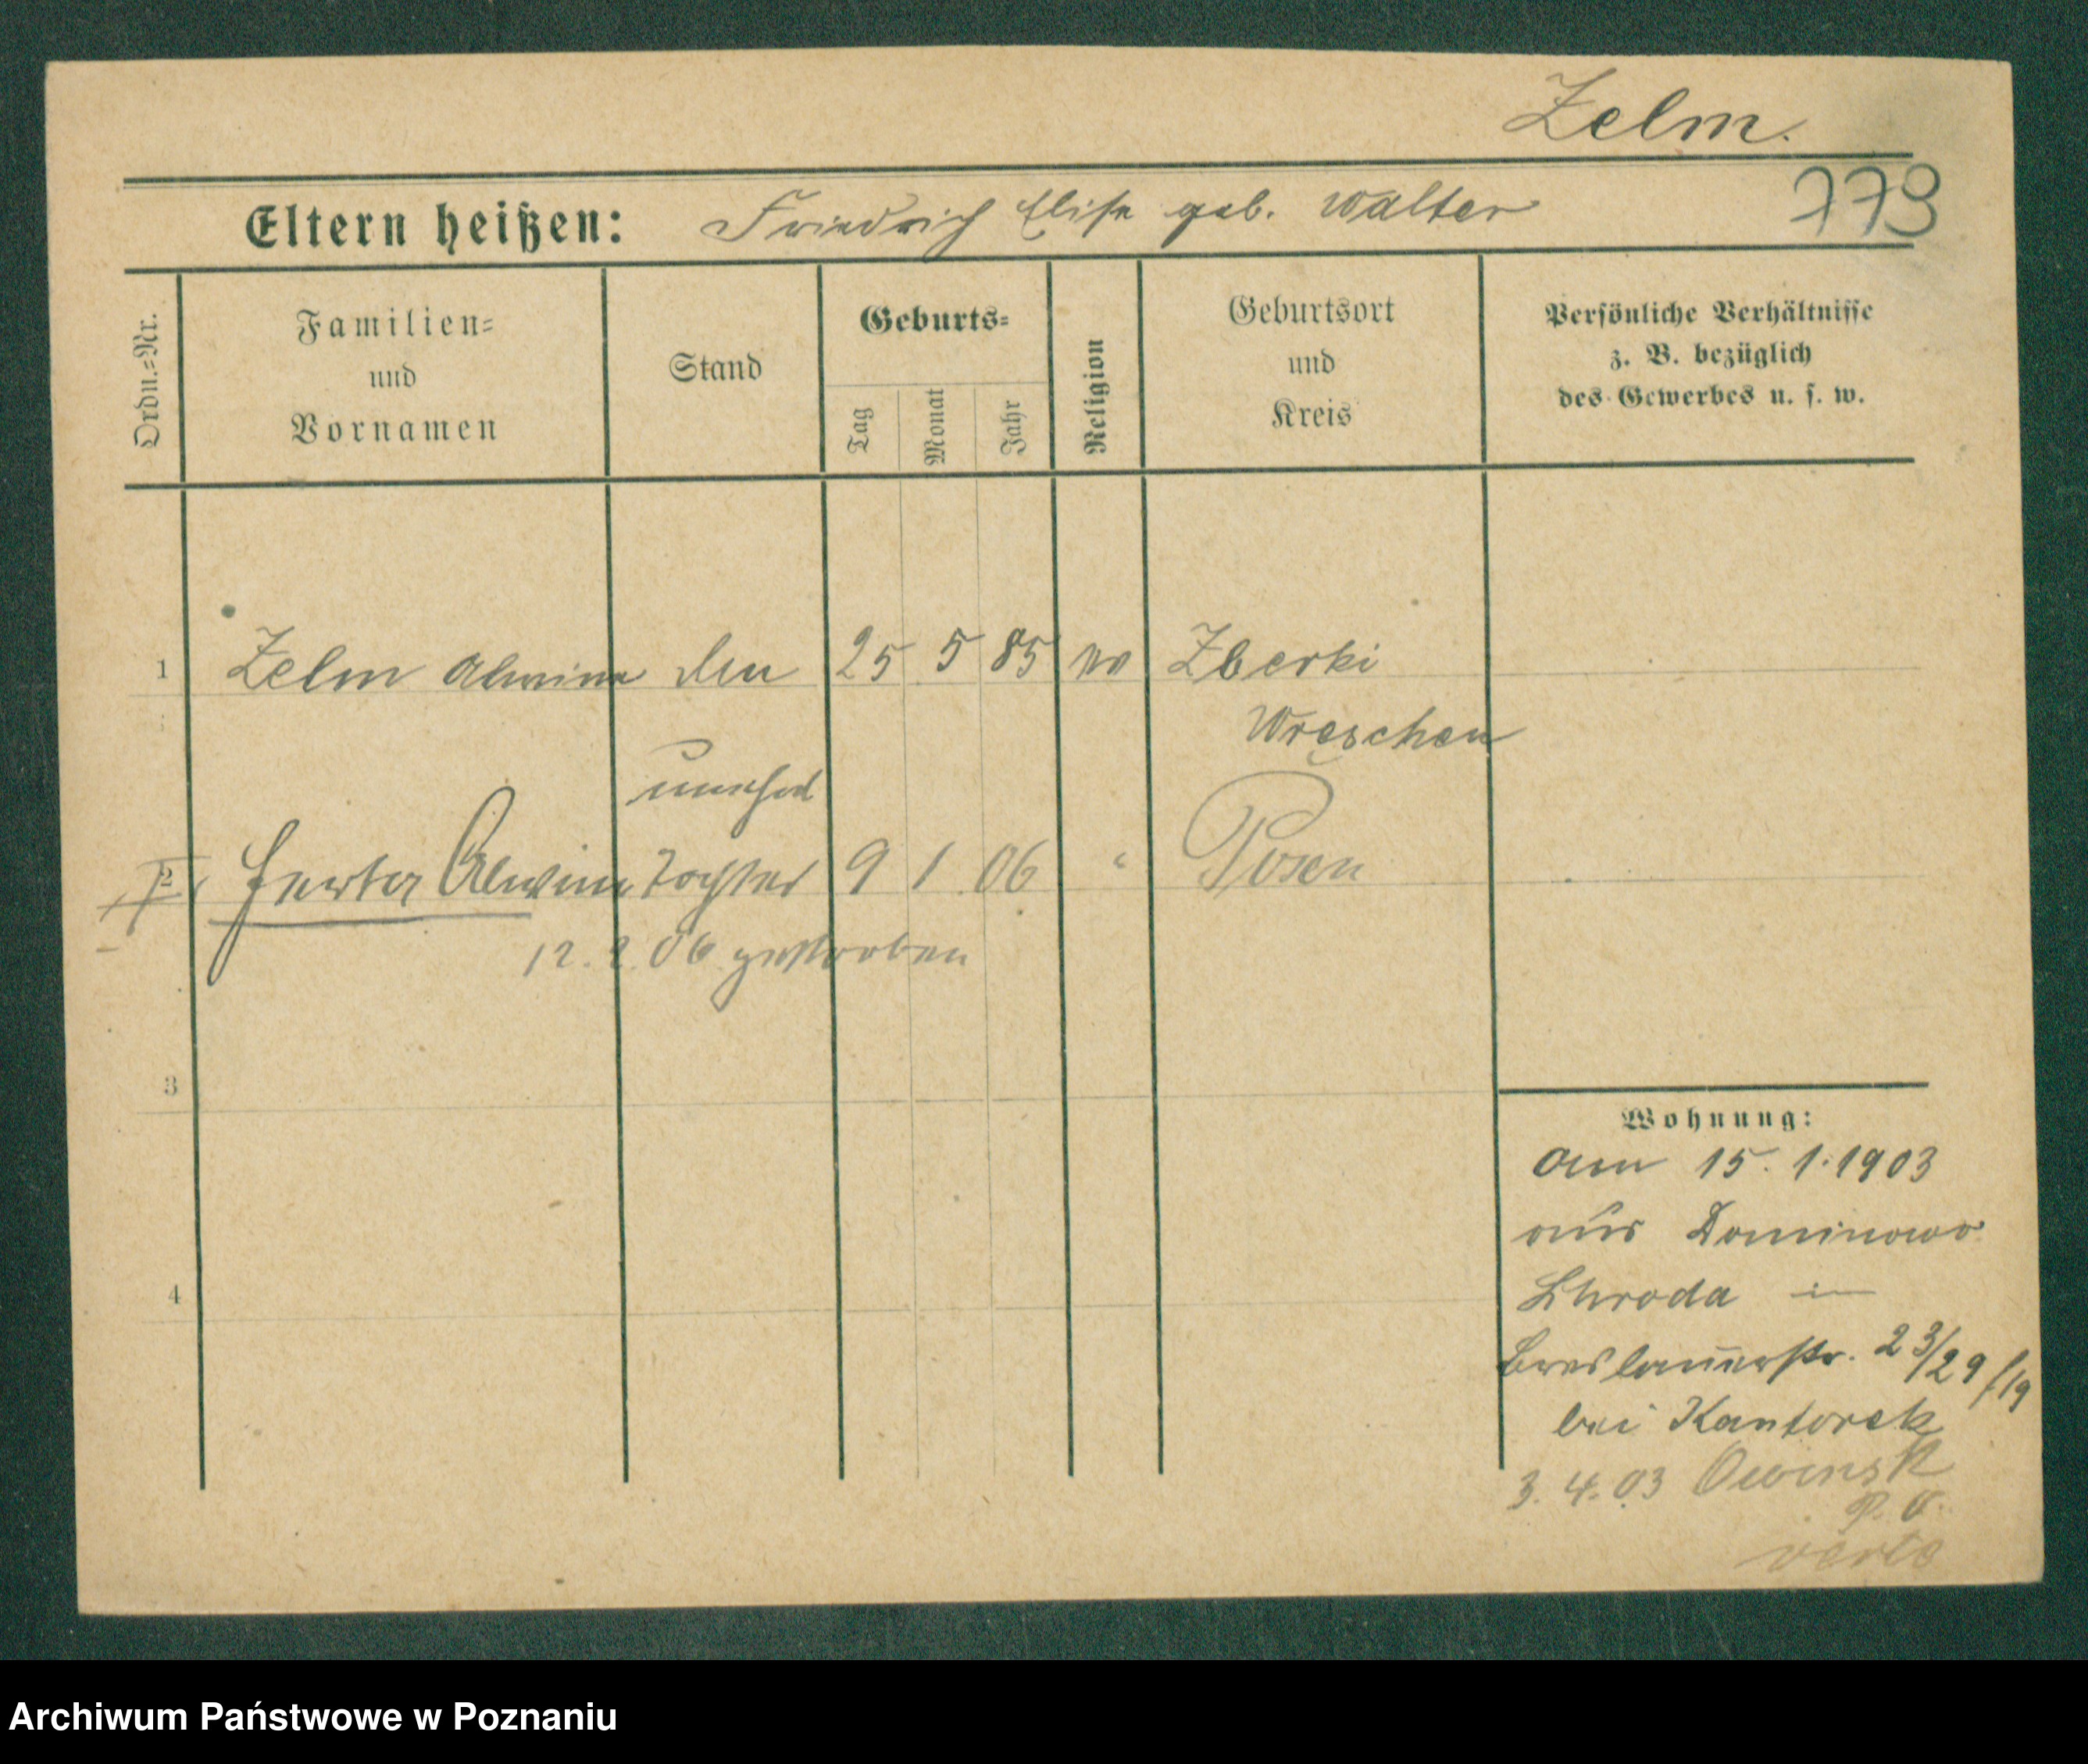 Zelm.
779
Eltern heißen: Friedrich Elise geb. Walter
Ordn.=Nr.
Familien=
und
Vornamen
Stand
Geburts=
Tag
Monat
Jahr
Religion
Geburtsort
und
Kreis
Persönliche Verhältnisse
z. B. bezüglich
des Gewerbes u. s. w.
1 Zelm Alwine 25 5 85 Zberki
Wreschen
unehel
2 Herta Alwine Tochter 9 1 06 " Posen
12. 2. 06 gestorben
3
4
Wohnung:
Am 15. 1. 1903
aus Dominowo
Schroda in
Breslauerstr. 23/29
bei Kantorek
3. 4. 03 Owinsk
P. O.
verte
Archiwum Państwowe w Poznaniu